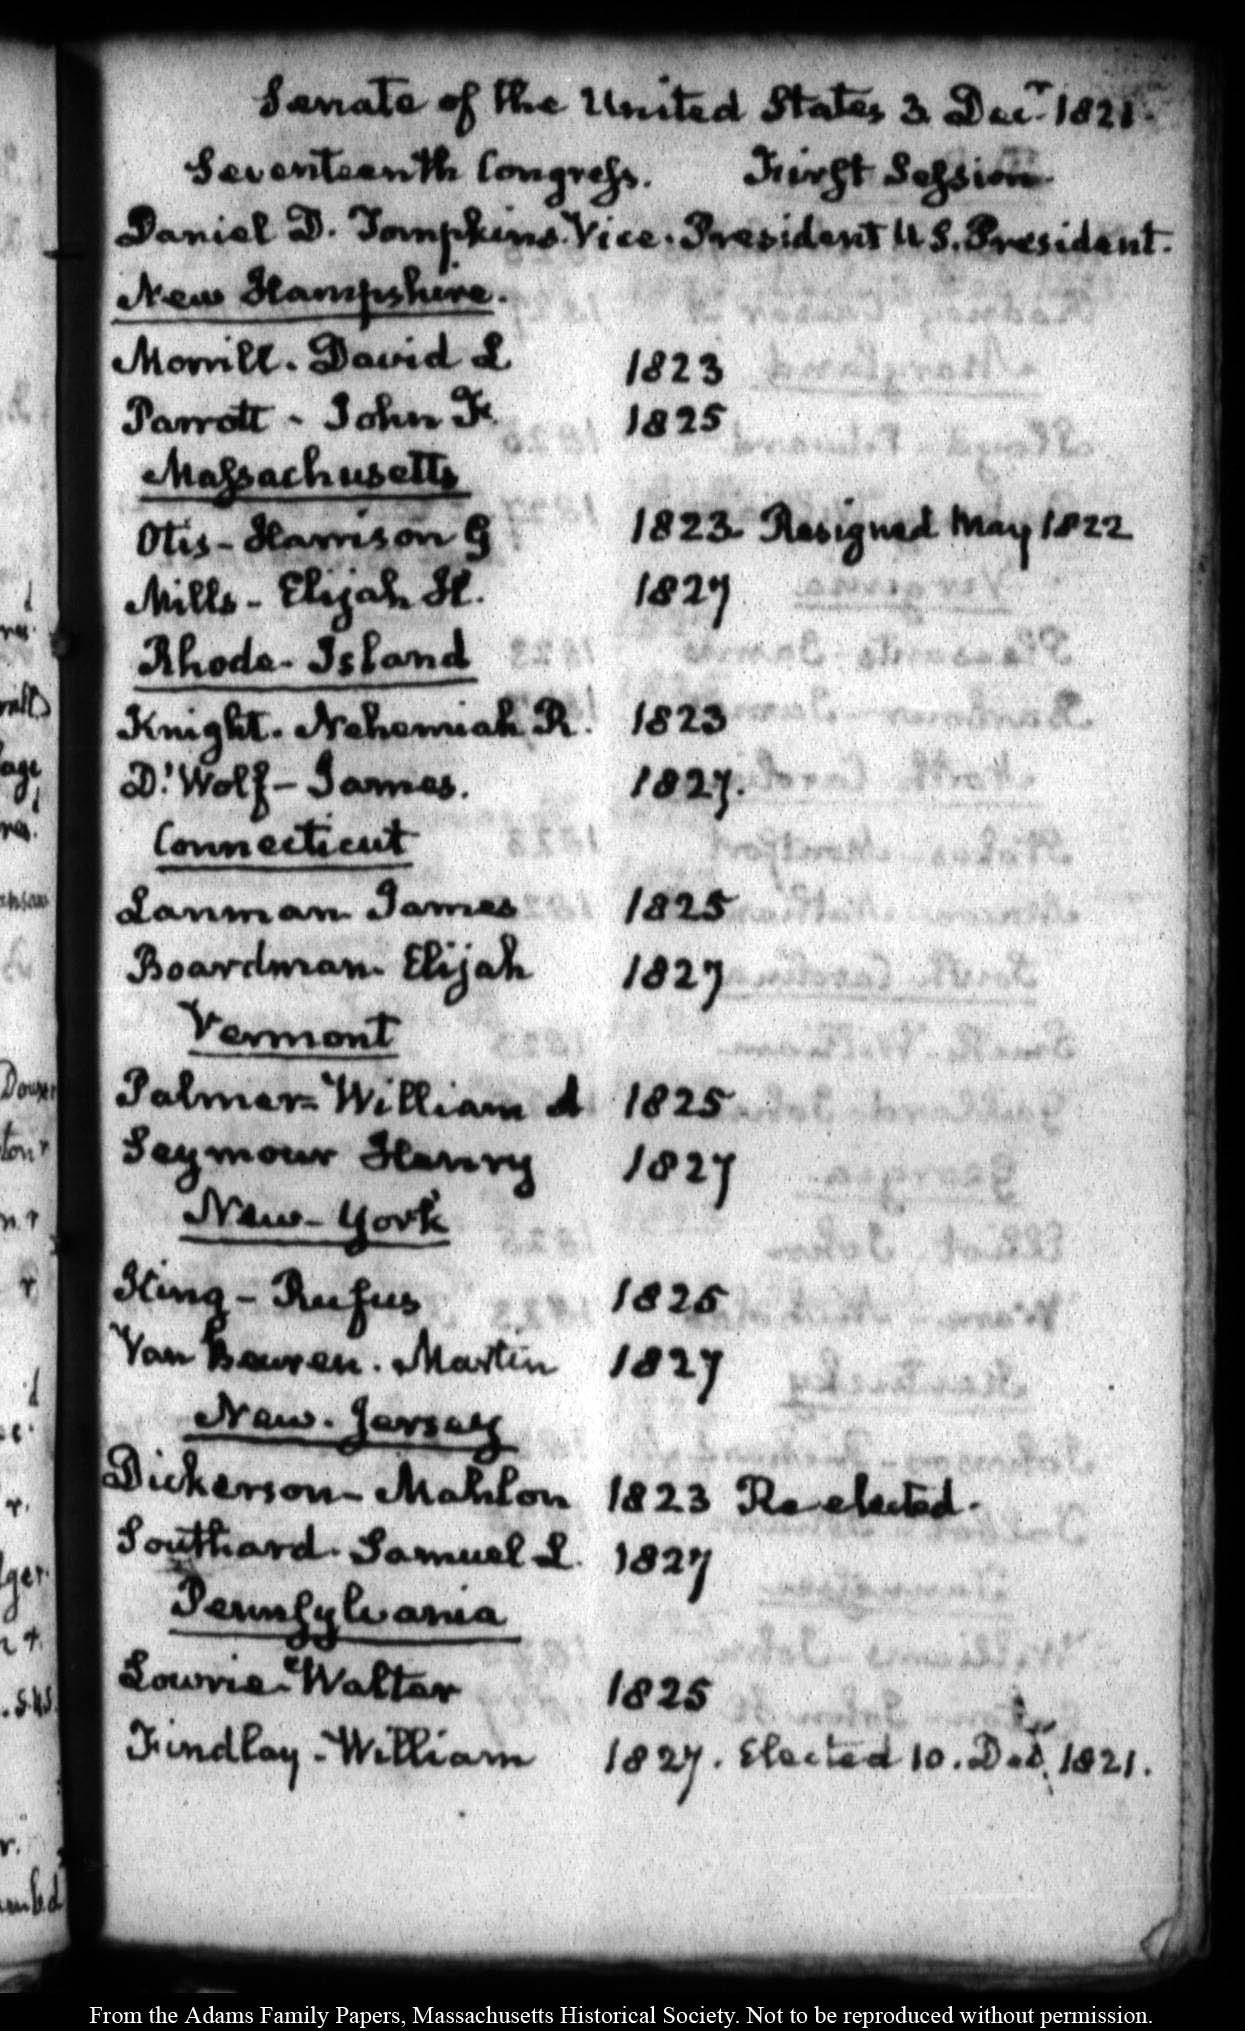 Senate of the United States 3 Decr. 1821.
Seventeenth Congress. First Session
Daniel D. Tompkins. Vice. President U S. President.
New Hampshire.
Morrill. David L 1823
Parrott - John F. 1825
Massachusetts
Otis - Harrison G 1823. Resigned May 1822
Mills - Elijah H. 1827
Rhode-Island
Knight. Nehemiah R. 1823
D'Wolf - James. 1827.
Connecticut
Lanman. James 1825
Boardman. Elijah 1827
Vermont
Palmer = William A 1825
Seymour Henry 1827
New-York
King - Rufus 1825
Van Beuren. Martin 1827
New-Jersey
Dickerson - Mahlon 1823 Re-elected.
Southard. Samuel L. 1827
Pennsylvania
Lowrie - Walter 1825
Findlay - William 1827. Elected 10. Decr. 1821.
From the Adams Family Papers, Massachusetts Historical Society. Not to be reproduced without permission.